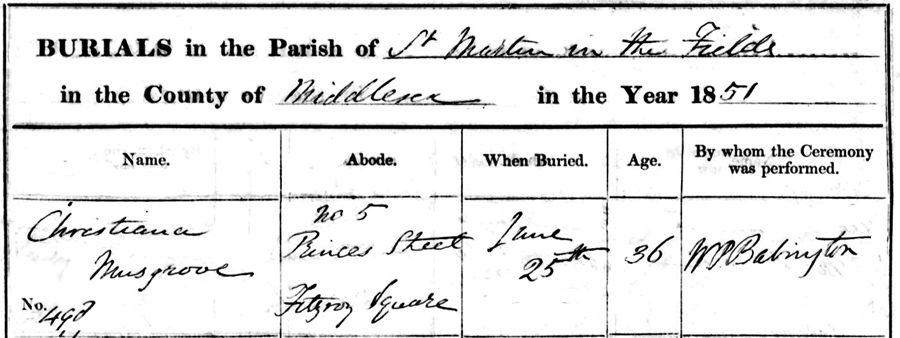 BURIALS in the Parish of St Martin in the Fields
in the County of Middlesex in the Year 1851
Name. Abode. When Buried. Age. By whom the Ceremony was performed.
Christiana Musgrove
No. 498
No 5
Princes Street
Fitzroy Square
June
25th
36
WP Babington